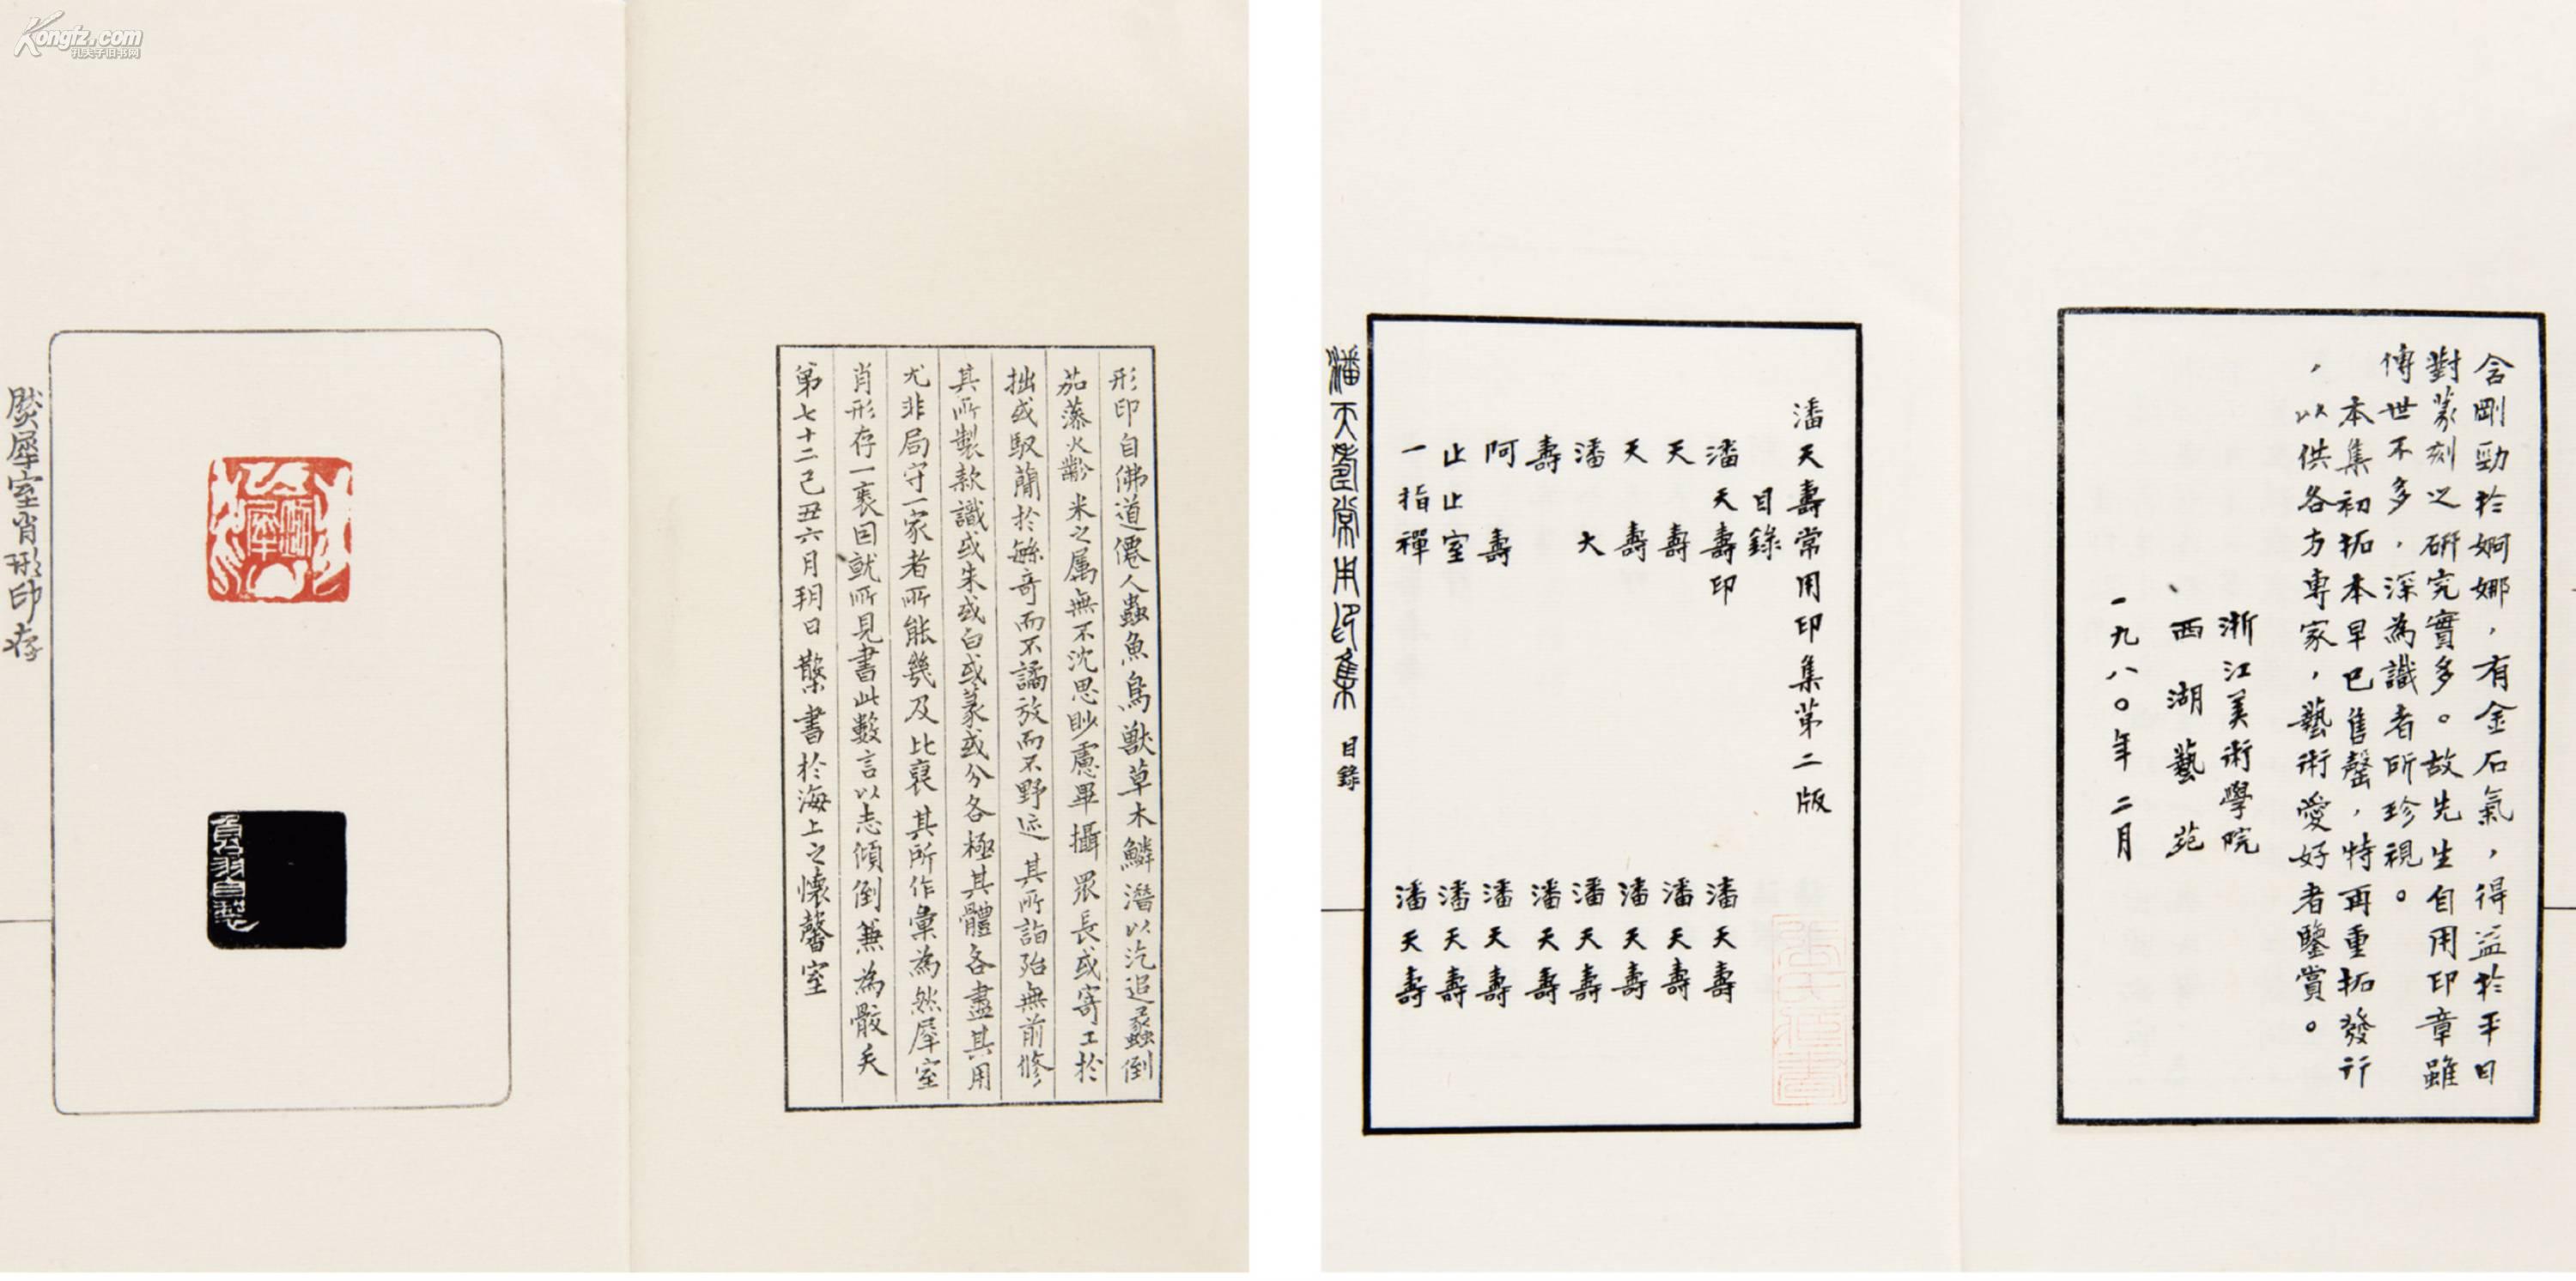 Kongfz.com
孔夫子旧书网
形印自佛道僊人蟲魚鳥獸草木鱗潛以汔追蠡倒
茄藻火黺米之屬無不沈思眇慮畢攝眾長或寄工於
拙或馭簡於緐奇而不譎放而不野迹其所詣殆無前修
其所製款識或朱或白或篆或分各極其體各盡其用
尤非局守一家者所能幾及比裒其所作彙為然犀室
肖形存一袠因就所見書此數言以志傾倒兼為骹矢
第七十二己丑六月玥日檠書於海上之懷馨室
然犀室肖形印存
含剛勁於婀娜，有金石氣，得益於平日
對篆刻之研究實多。故先生自用印章雖
傳世不多，深為識者所珍視。
本集初拓本早已售罄，特再重拓發行
，以供各方專家，藝術愛好者鑒賞。
浙江美術學院
西湖藝苑
一九八〇年二月
潘天壽常用印集第二版
目錄
潘天壽印 潘天壽
天壽 潘天壽
天壽 潘天壽
潘大 潘天壽
壽 潘天壽
阿壽 潘天壽
止止室 潘天壽
一指禪 潘天壽
潘天壽常用印集 目錄